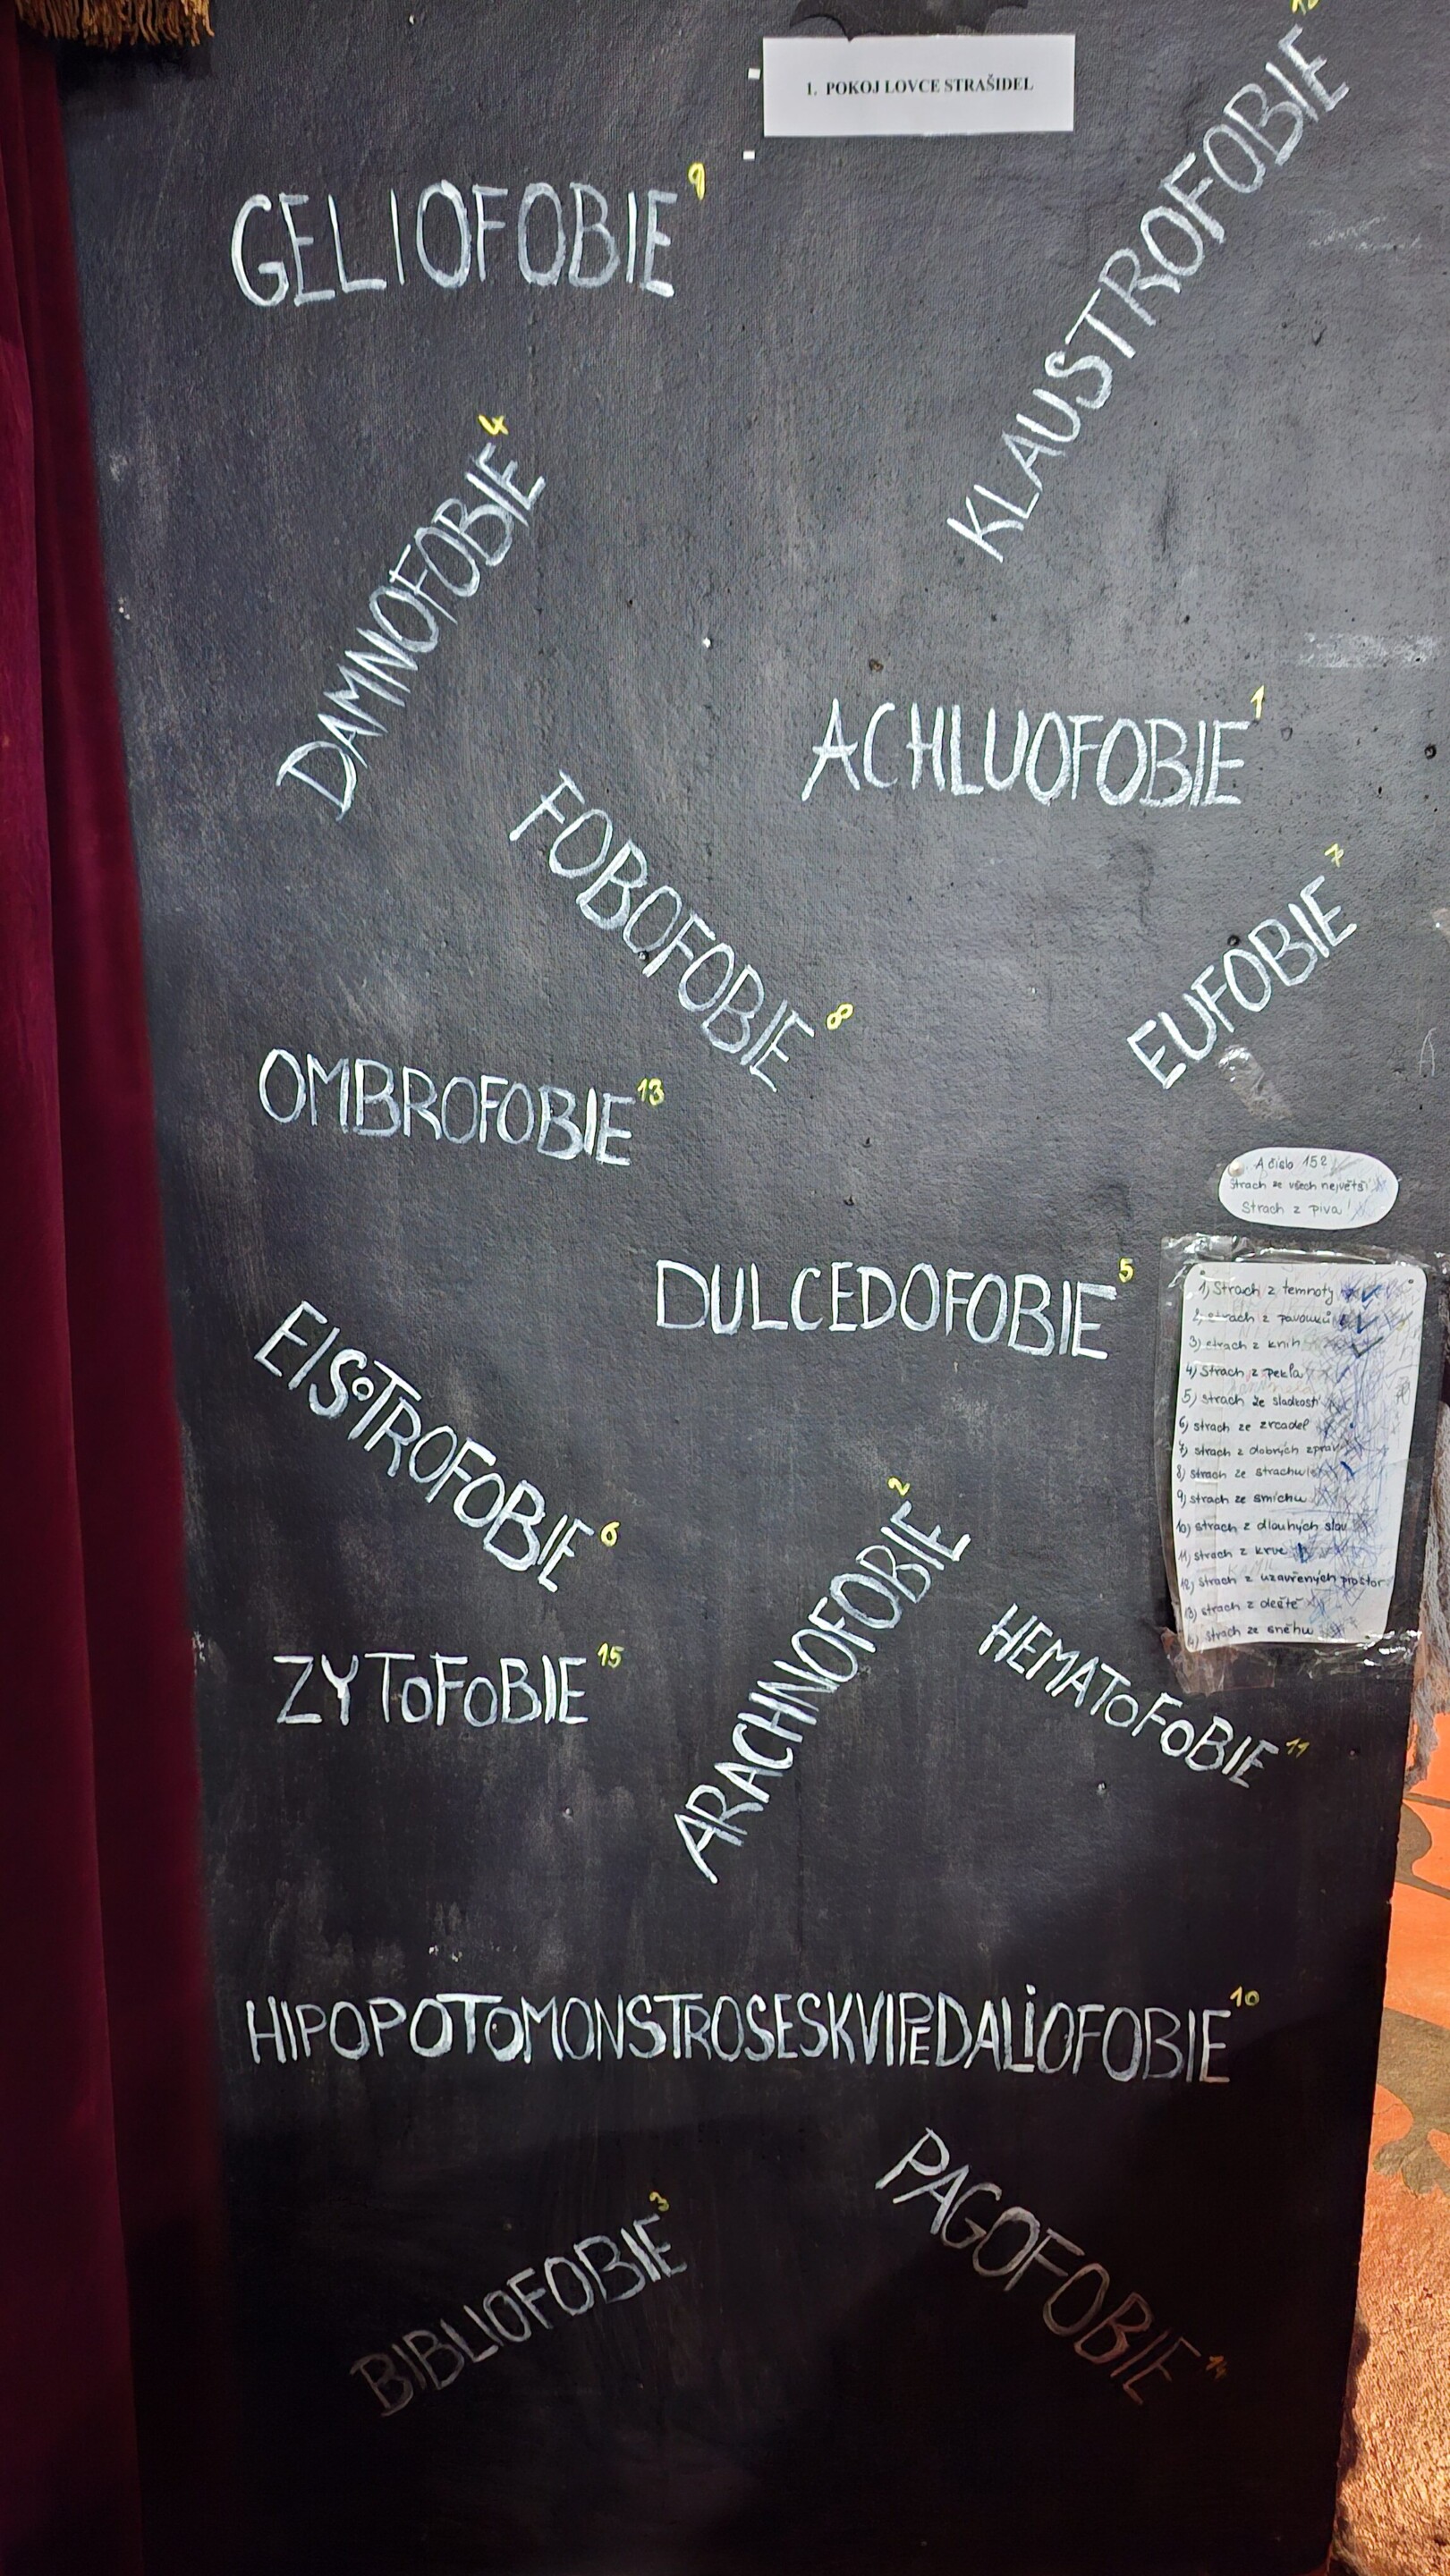 1. POKOJ LOVCE STRAŠIDEL
GELIOFOBIE 9
KLAUSTROFOBIE
DAMNOFOBIE 4
ACHLUOFOBIE 1
FOBOFOBIE 8
EUFOBIE 7
OMBROFOBIE 13
A číslo 152
Strach ze všech největší
Strach z piva!
DULCEDOFOBIE 5
1) Strach z temnoty
2) strach z pavouků
3) strach z knih
4) Strach z pekla
5) strach ze sladkostí
6) strach ze zrcadel
7) strach z dobrých zpráv
8) strach ze strachu
9) strach ze smíchu
10) strach z dlouhých slov
11) strach z krve
12) strach z uzavřených prostor
13) strach z deště
strach ze sněhu
EISOTROFOBIE 6
ARACHNOFOBIE 2
HEMATOFOBIE 11
ZYTOFOBIE 15
HIPOPOTOMONSTROSESKVIPEDALIOFOBIE 10
PAGOFOBIE 14
BIBLIOFOBIE 3